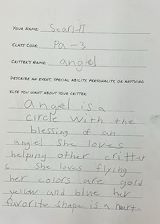 YOUR NAME: Sean-A
CLASS CODE: Pa-3
CRITTER'S NAME: angel
DESCRIBE AN EVENT, SPECIAL ABILITY, PERSONALITY, OR ANYTHING
ELSE YOU WANT ABOUT YOUR CRITTER:
Angel is a
circle with the
blessing of an
angel she loves
helping other critter
s she loves flying
her colors are gold
yellow and blue her
favorite shape is a heart